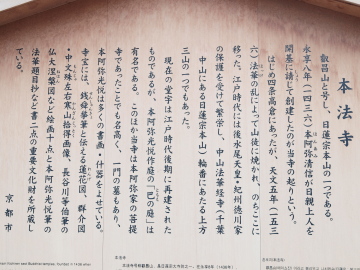 本法寺
叡昌山と号し、日蓮宗本山の一つである。
永享八年(一四三六)本阿弥清信が日親上人を
開基に請じて創建したのが当寺の起りという。
はじめ四条高倉にあったが、天文五年(一五三
六)法華の乱によって山徒に焼かれ、のちここに
移った。江戸時代には後水尾天皇・紀州徳川家
の保護を受けて繁栄し、中山法華経寺(千葉
中山にある日蓮宗本山)輪番にあたる上方
三山の一つでもあった。
現在の堂宇は江戸時代後期に再建された
ものであるが、本阿弥光悦作庭の「巴の庭」は
有名である。このほか当寺は本阿弥家の菩提
寺であったことでも名高く、一門の墓もあり、
本阿弥光悦は多くの書画・什器をよせている。
寺宝には、銭舜挙筆と伝える蓮花図、群介図
・中文殊左右寒山拾得画像、長谷川等伯筆の
仏大涅槃図など絵画十点と本阿弥光悦筆の
法華題目抄など書二点の重要文化財を所蔵し
ている。
京都市
本法寺